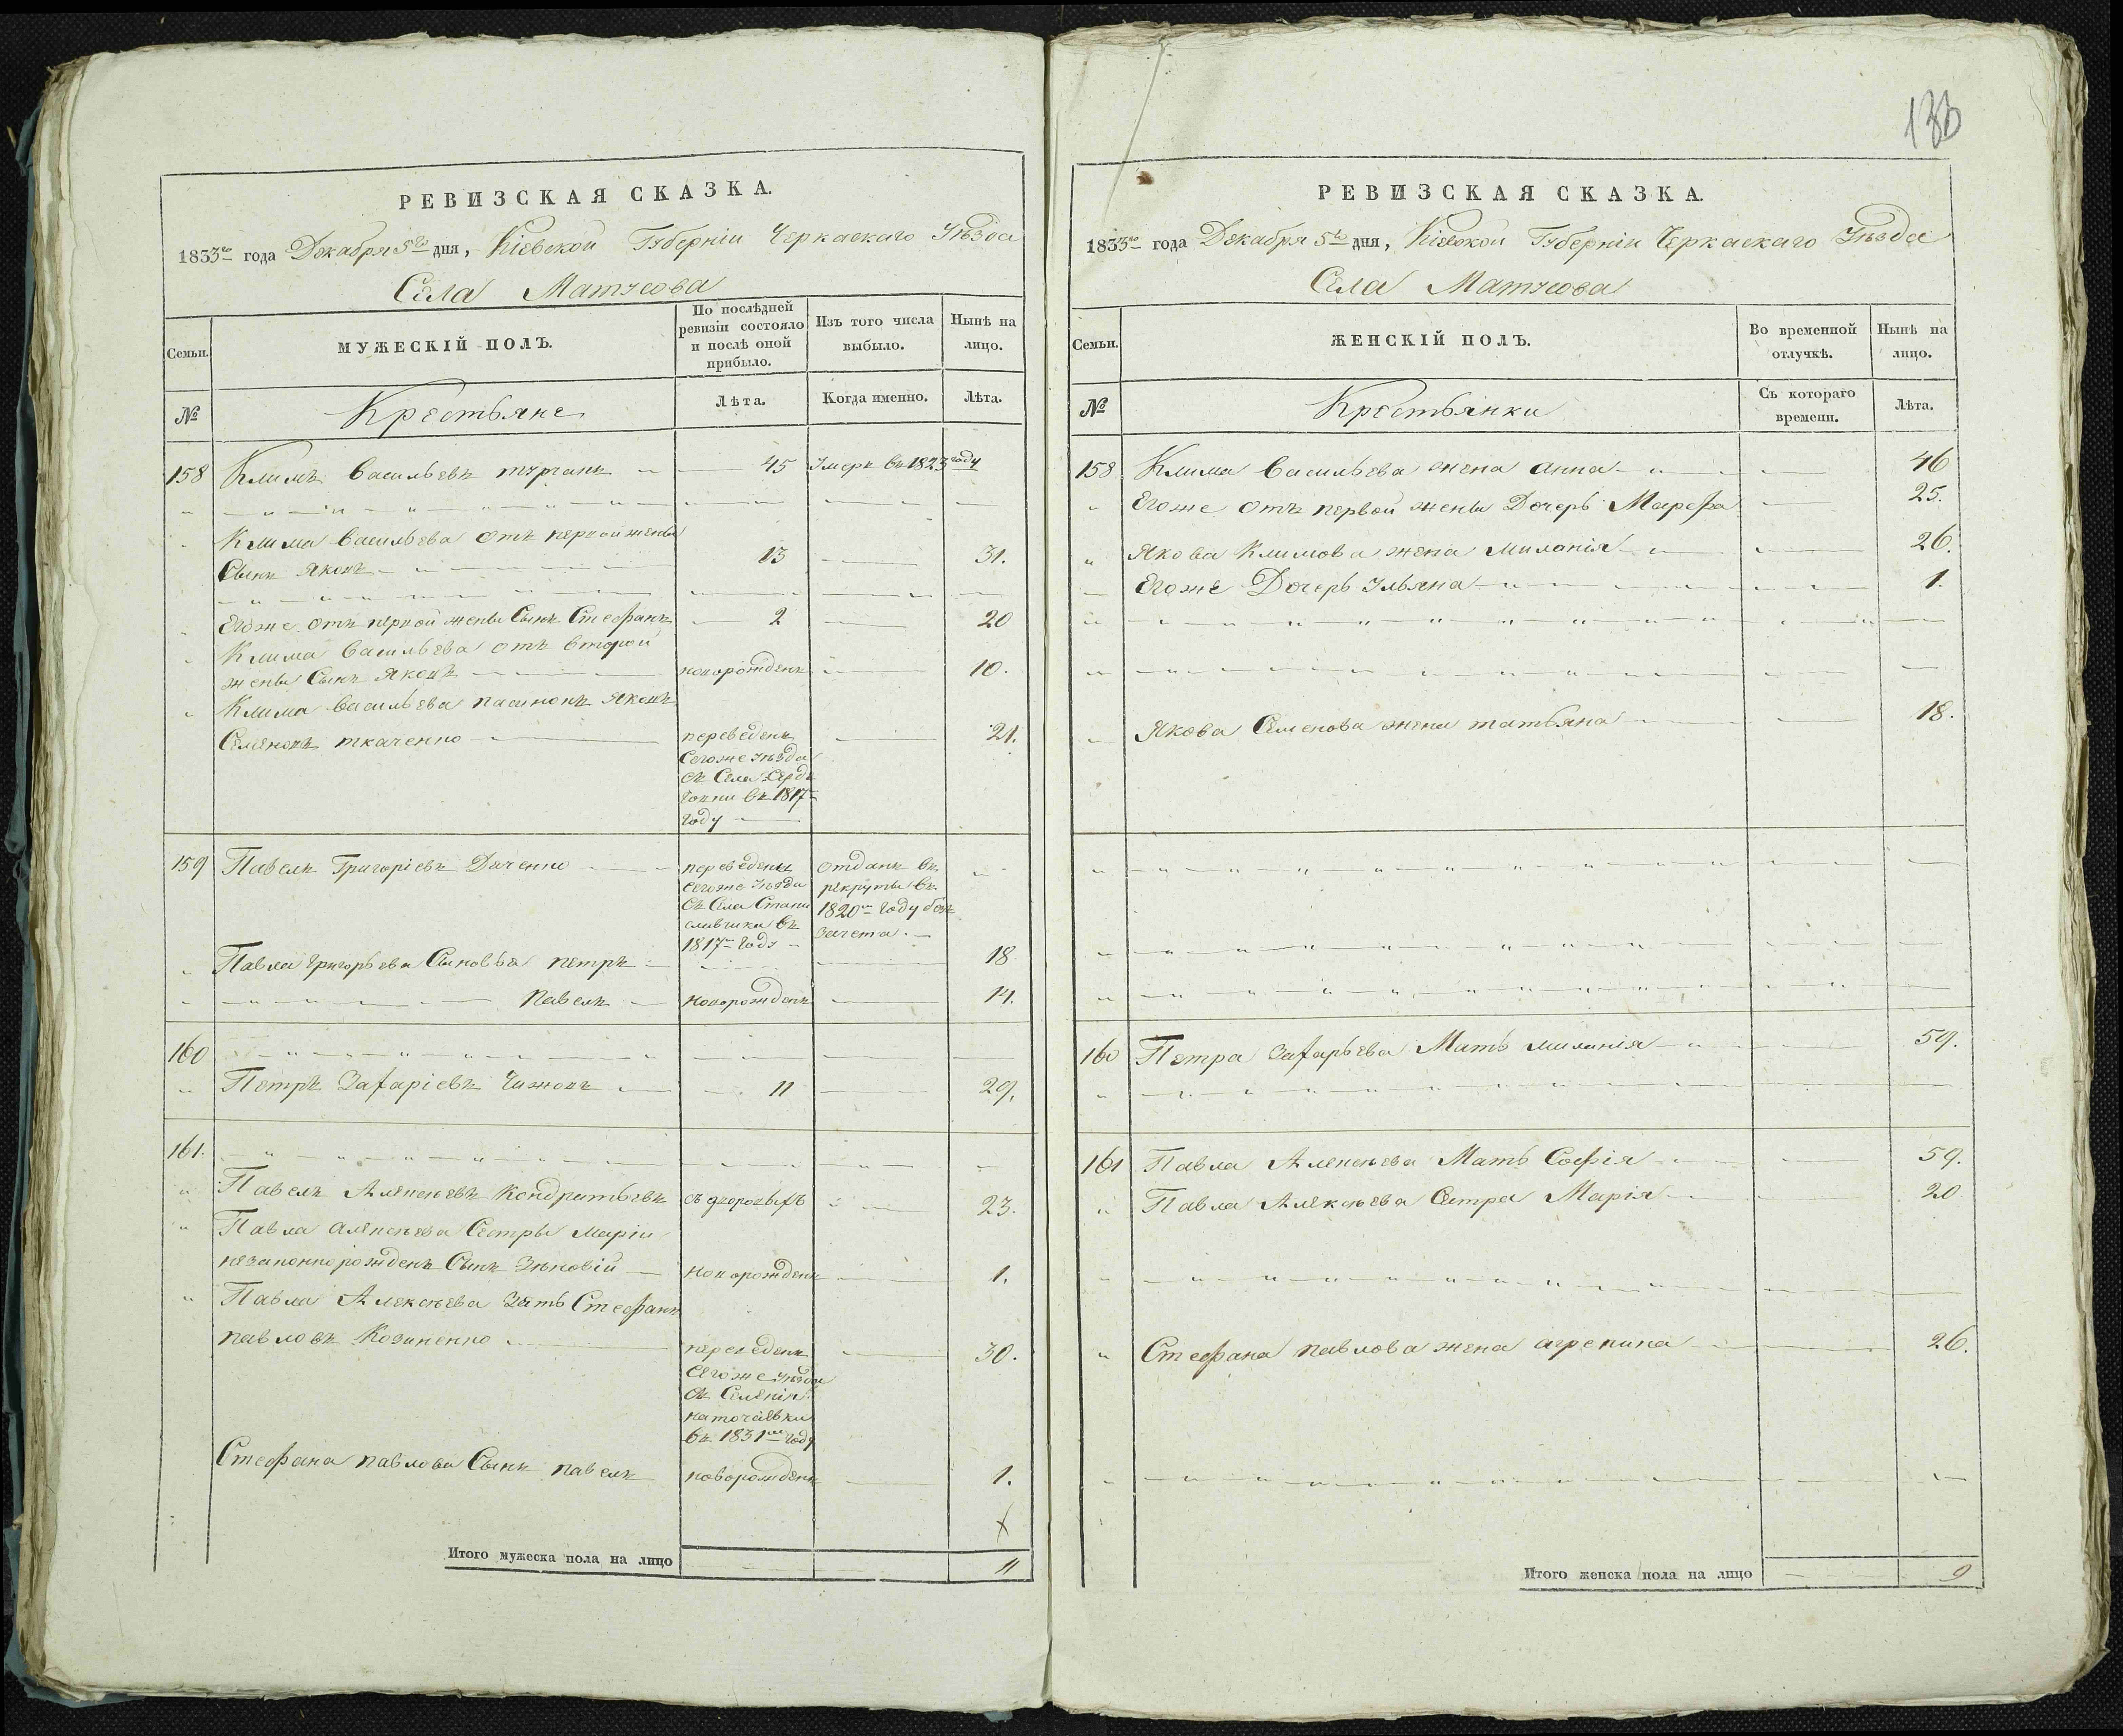 133
РЕВИЗСКАЯ СКАЗКА.
1833го года Декабря 5го дня, Кіевской Губерніи Черкаскаго Уѣзда
Села Матусова
Семьи.
МУЖЕСКІЙ ПОЛЪ.
По послѣдней ревизіи состояло и послѣ оной прибыло.
Изъ того числа выбыло.
Нынѣ на лицо.
№
Крестьяне
Лѣта.
Когда именно.
Лѣта.
158 Климъ Васильевъ 45 Умеръ въ 1823 году
Клима Васильева отъ первой жены
Сынъ Яковъ 13 31.
Егоже отъ первой жены Сынъ Стефанъ 2 20
Клима Васильева отъ второй
жены Сынъ Яковъ новорожденъ 10.
Клима Васильева пасынокъ Яковъ
Семеновъ ткаченко переведенъ 21.
Сегоже уѣзда
съ Села
въ 1817м
году
159 Павелъ Григоріевъ Даченко переведенъ отданъ въ
сегоже уѣзда рекруты въ
съ Села Стани 1820м году безъ
славчика въ зачета.
1817м году
Павла Григорьева Сыновья петръ 18
павелъ новорожденъ 14.
160
Петръ Захаріевъ Чижовъ 11 29.
161.
Павелъ Алексѣевъ Кондратьевъ съ дворовыхъ 23.
Павла Алексѣева Сестры Маріи
незаконнорожденъ Сынъ Зѣновій новорожденъ 1.
Павла Алексѣева Зять Стефанъ
павловъ Козиненко переведенъ 30.
Сегоже уѣзда
съ Селенія
въ 1831м году
Стефана павлова Сынъ павелъ новорожденъ 1.
Итого мужеска пола на лицо 11
РЕВИЗСКАЯ СКАЗКА.
1833го года Декабря 5го дня, Кіевской Губерніи Черкаскаго Уѣзда
Села Матусова
Семьи.
ЖЕНСКІЙ ПОЛЪ.
Во временной отлучкѣ.
Нынѣ на лицо.
№
Крестьянки
Съ котораго времени.
Лѣта.
158 Клима Васильева жена анна 46
Егоже отъ первой жены Дочерь Марефа 25.
Якова Климова жена миланія 26.
Егоже Дочерь Ульяна 1.
Якова Семенова жена татьяна 18.
160 Петра Захарьева Мать миланія 59.
161 Павла Алексѣева Мать Софія 59.
Павла Алексѣева Сестра Марія 20
Стефана павлова жена агрепина 26.
Итого женска пола на лицо 9